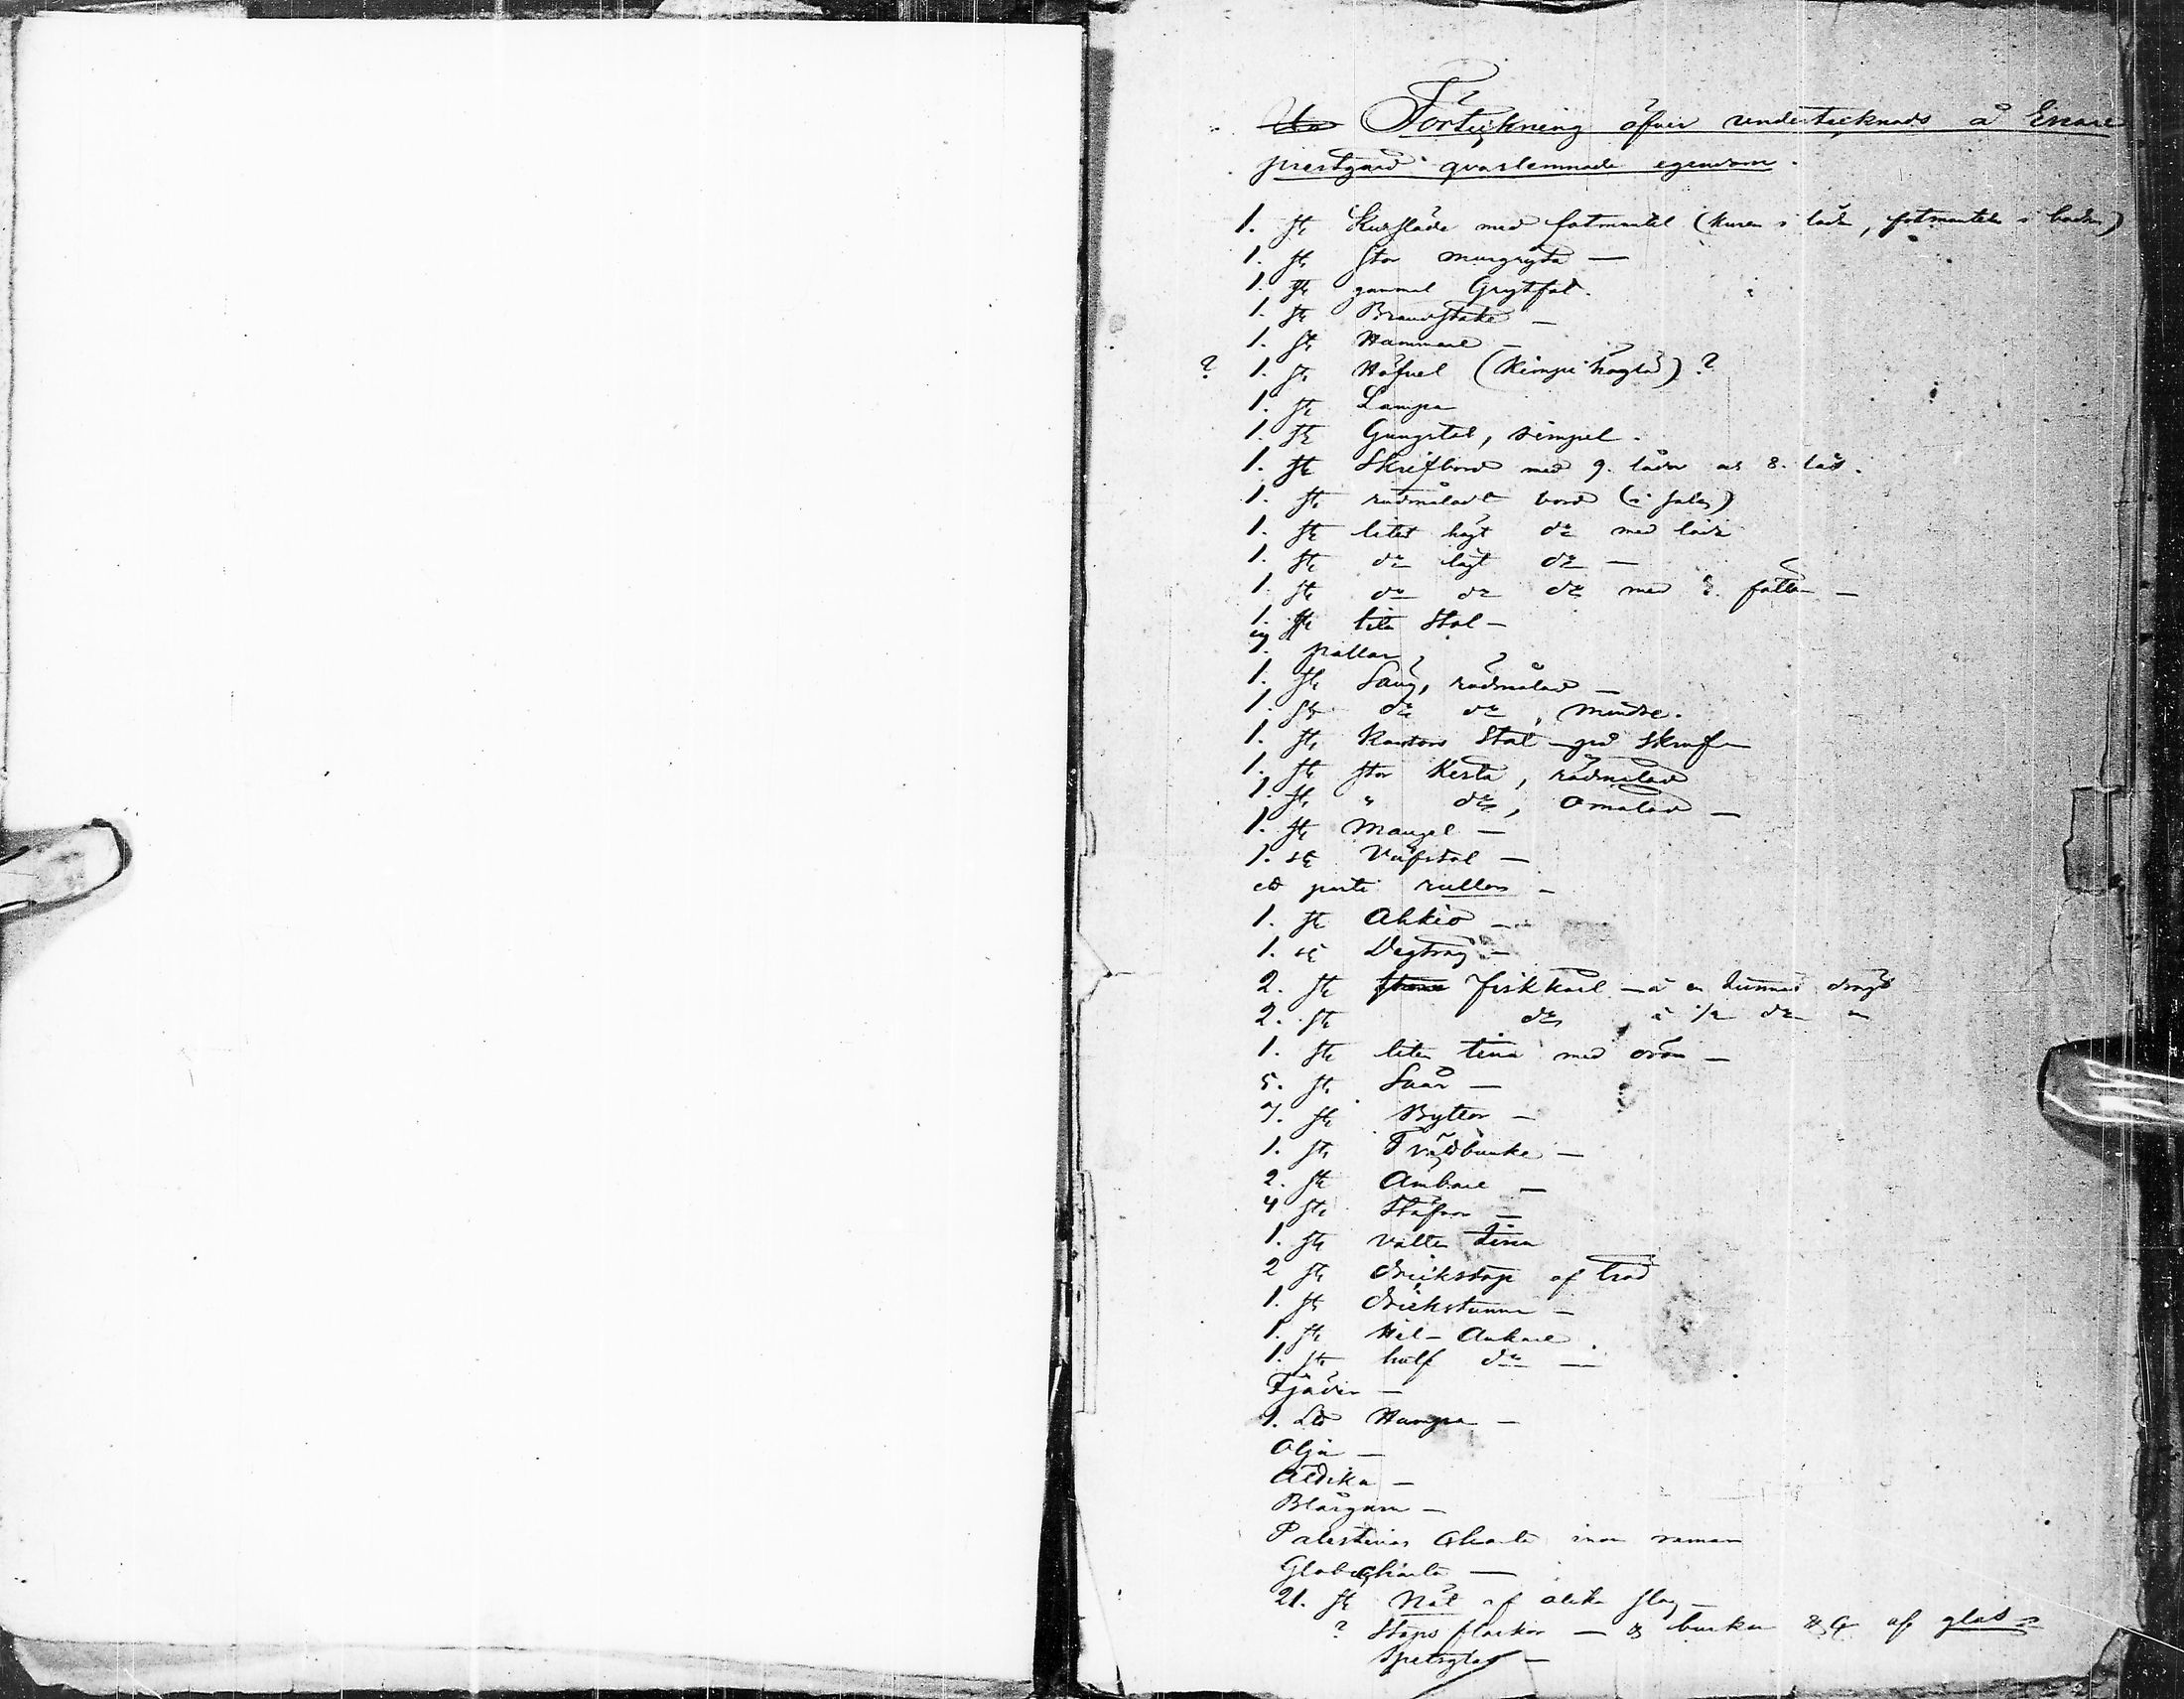 Förteckning öfver undertecknads å Enare
prestgård qvarlemnade egendom.
1. st. Kursläde med fotmantel (kuren i lådn, fotmanteln i boden)
1. st. stor murgryta —
1. st. gammal Grytfat.
1. st. Brandstake —
1. st. Hammare —
? 1. st. Häfvel ( höglä) ?
1. st. Lampa
1. st. Gungstol, simpel.
1. st. Skrifbord med 9. lådor ock 8. lås.
1. st. rödmåladt bord (i salen)
1. st. litet högt d:o med låda
1. st. d:o lågt d:o —
1. st. d:o d:o d:o med 2. fällar —
1. st. liten stol —
7. pallar,
1. st. Säng, rödmålad —
1. st. d:o d:o, mindre.
1. st. Kontors Stol på skruf —
1. st. stor Kista, rödmålad
1. st. " d:o, omålad —
1. st. Mangel —
1. st. Väfstol —
ett parti rullor —
1. st. Ahkio —
1. st. Degtråg —
2. st. Fiskkärl — à en tunnas drygt
2. st. d:o à 1/2 d:o "
1. st. liten tina med öron —
5. st. Såar —
7. st. Byttor —
1. st. Trädbunke —
2. st. Ämbare —
4 st. Stäfvor —
1. st. vatten tina
2 st. drickstop af träd
1. st. drickstunna —
1. st. Hel-Ankare .
1. st. half d:o —
Fjäder —
1. L℔ Hampa —
Olja —
Ättika —
Blårgarn —
Palestinas Charta inom ramar
Globcharta —
21. st. Nät af olika slag —
? Stops flaskor — & burkar &c af glas
Spetsglas —